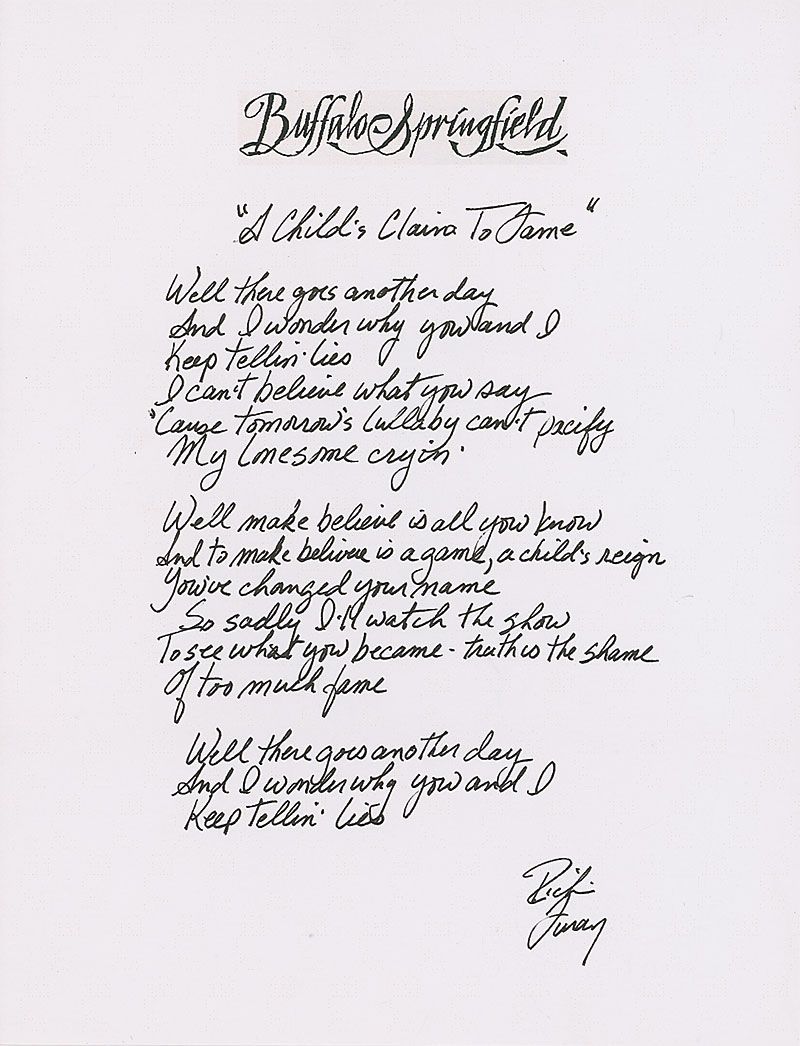 Buffalo Springfield
"A Child's Claim To Fame"
Well there goes another day
And I wonder why you and I
Keep tellin' lies
I can't believe what you say
'Cause tomorrow's lullaby can't pacify
My lonesome cryin'
Well make believe is all you know
And to make believe is a game, a child's reign
You've changed your name
So sadly I'll watch the show
To see what you became - truth is the shame
Of too much fame
Well there goes another day
And I wonder why you and I
Keep tellin' lies
Richie
Furay